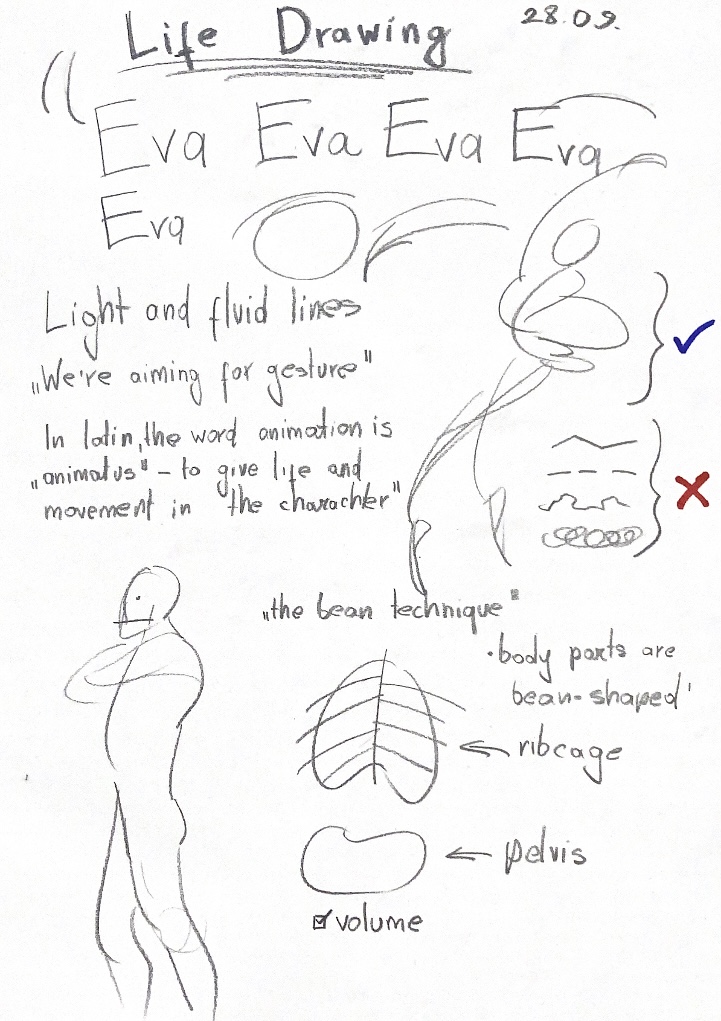 Life Drawing
28.09.
Eva Eva Eva Eva
Eva
Light and fluid lines
„We're aiming for gesture"
In latin, the word animation is
„animatus" – to give life and
movement in "the charachter"
„the bean technique"
• body parts are
bean-shaped'
← ribcage
← pelvis
☑ volume